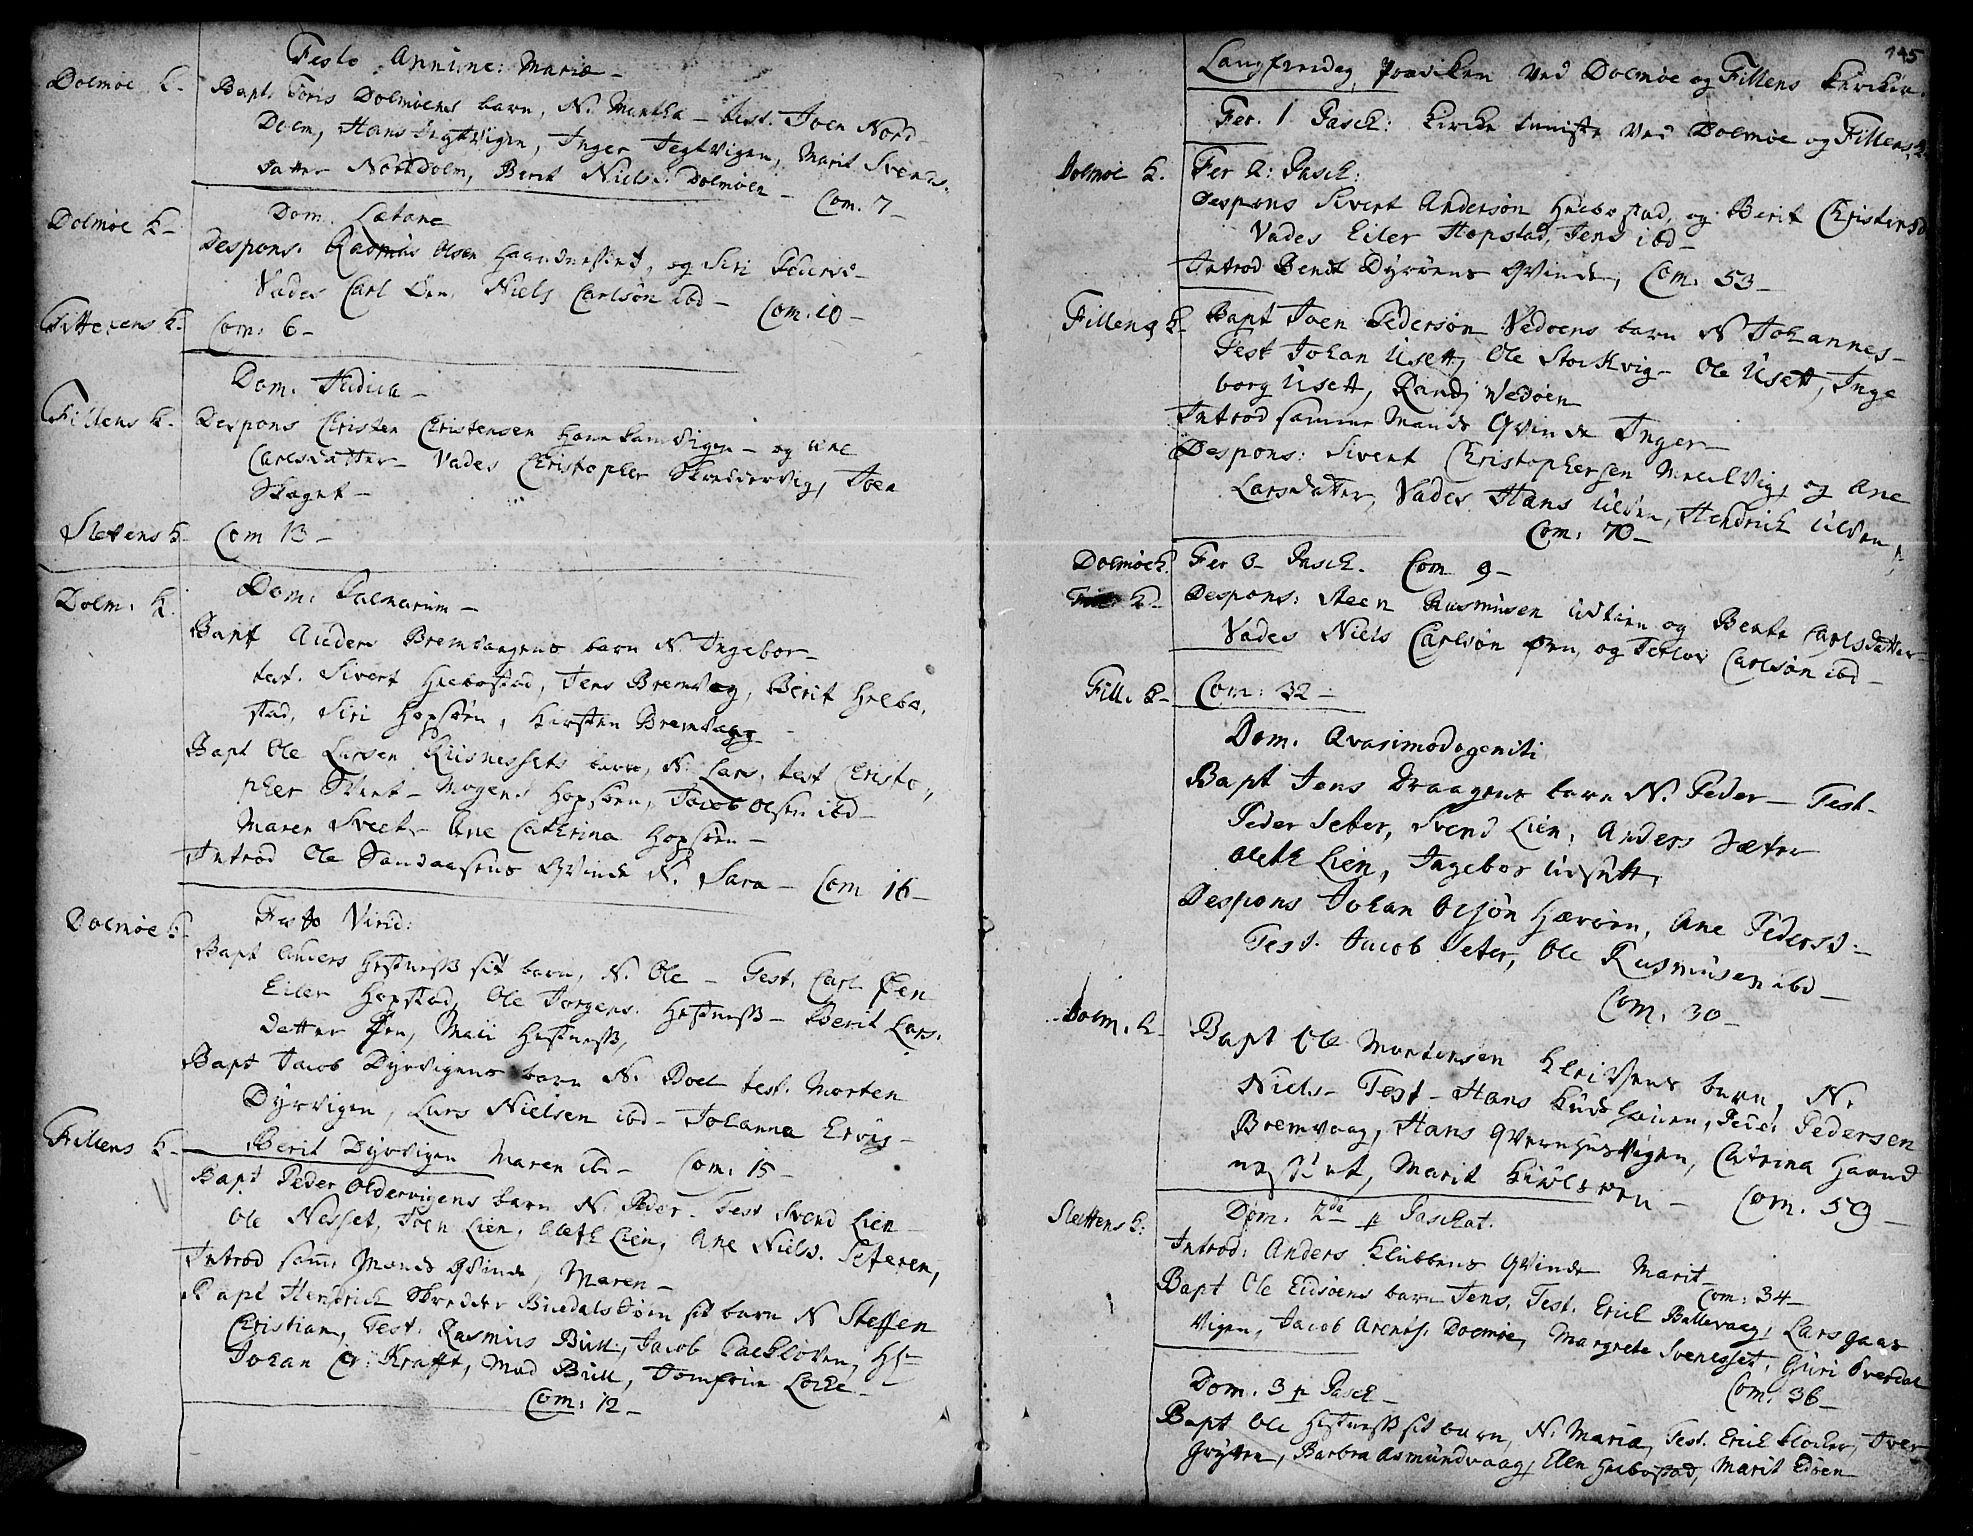 Festo Annunc: Mariæ –
Dolmøe K. – Bapt. Joris Dolmøens barn, N. Martha – test. Joen Nord
Dolm, Hans Jegtvigen, Inger Jegtvigen, Marit Svends.
datter Nordolm, Berit Niels: Dolmøen – Com. 7 –
Dom. Lætare
Dolmøe K – Despons. Rasmus Olsen Haandnesset, og Siri Peders –
Vades Carl Øen, Niels Carlsøn ibd – Com: 10 –
Fillens K. Com: 6 –
Dom. Judica –
Fillens K. Despons Christen Christensen – og Ane
Carlsdatter – Vades Christopher Skreddervig, Joen
Skaget –
Slettens K – Com 13 –
Dom: Palmarum –
Dolm. K. Bapt Anders Bremvaagens barn N. Ingebor –
test. Sivert Helbostad, Jens Bremvaag, Berit Helbo,
stad, Siri Hopsøen, Kirsten Bremvaag –
Bapt Ole Larsen Kiisnessets barn, N. Lars, test Christo,
pher – Mogens Hopsøen, Jacob Olsen ibd –
Maren – Ane Cathrina Hopsøen –
Introd Ole Sandaasens Qvinde N. Sara – Com 16 –
Festo Virid:
Dolmøe K – Bapt Anders Hestness sit barn, N. Ole – Test. Carl Øen
Eiler Hopstad, Ole Jorgens. Hestness – Berit Lars.
datter Øen, Mali Hestness,
Bapt Jacob Dyrvigens barn N. Boel test. Morten
Dyrvigen, Lars Nielsen ibd – Johanna
Berit Dyrvigen Maren ibd – Com: 15 –
Fillens K – Bapt Peder Oldervigens barn N. Peder – Test Svend Lien
Ole Nesset, Joen Lien, Oleth Lien, Ane Niels. Seteren,
Introd sam: Mands Qvinde, Maren –
Bapt Hendrich Skredder sit barn N Steffen
Christian, Test. Rasmus Bull, Jacob, Hr
Johan Chr: Krafft, Mad Bull, Jomfrue Locke –
Com: 12 –
145
Langfredag Prædiken ved Dolmøe og Fillens Kircker.
Fer. 1 Pasch: Kircke ved Dolmøe og Fillens K
Dolmøe K. Fer 2: Pasch:
Despons Sivert Andersøn Helbostad, og Berit Christensd
Vades Eiler Hopstad, Jens ibd –
Introd Bendt Dyrøens Qvinde, Com: 53 –
Fillens K – Bapt Joen Pedersøn Vedøens barn N Johannes –
Test Johan Usett, Ole Stockvig – Ole Usett, Inge
borg Usett, Randi Vedøen
Introd samme Mands Qvinde Inger –
Despons: Sivert Christophersen, og Ane
Larsdatter, Vades Hans Ulven, Hendrich Ulven,
Com: 70 –
Dolmøe K. Fer 3 – Pasch. Com 9 –
Despons: Steen Rasmusen og Berte Carlsdatter
Vades Niels Carlsøn Øen, og Carlsøn ibd –
Fill. K – Com: 32 –
Dom. Qvasimodogeniti
Bapt Jens Draagens barn N. Peder – Test –
Peder Seter, Svend Lien, Anders Sæter
Oleth Lien, Ingebor Ulsett,
Despons Johan Olsøn, Ane Pedersd: –
Test. Jacob Seter, Ole Rasmusen ibd –
Com: 30 –
Dolm. K – Bapt Ole Mortensen barn, N.
Niels – Test – Hans, Peder Pedersen
Bremvaag, Hans Qvernhusvigen, Catrina Haand
nesset, Marit – Com. 59 –
Slettens K: Dom: 2da p Paschat.
Introd: Anders Klubbens Qvinde Marit –
Com: 34 –
Bapt Ole Eidsøens barn Jens, Test. Erich Ballevaag, Lars Gaas
vigen, Jacob Arents. Dolmøe, Margrete Svenesset, Guri Overdal
Com: 36 –
Dom. 3 p Pasch –
Bapt Ole Hestness sit barn, N. Maria, Test. Erich Klocker, Iver
Grytten, Barbra Asmundvaag, Ellen Helbostad, Marit